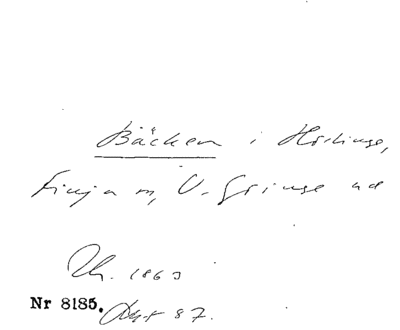 Bäcken i Hörlinge,
Finja m, V. Gringe
1863
Nr 8185. 87.